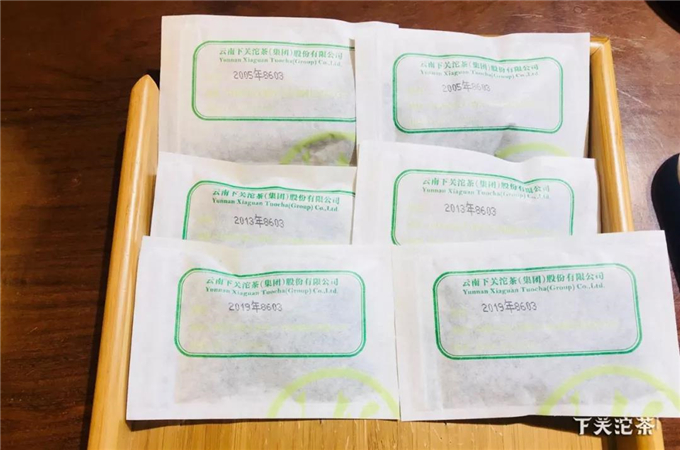 云南下关沱茶(集团)股份有限公司
Yunnan Xiaguan Tuocha(Group) Co.,Ltd.
2005年8603
云南下关沱茶(集团)股份有限公司
Yunnan Xiaguan Tuocha(Group) Co.,Ltd.
2005年8603
云南下关沱茶(集团)股份有限公司
Yunnan Xiaguan Tuocha(Group) Co.,Ltd.
2013年8603
云南下关沱茶(集团)股份有限公司
Yunnan Xiaguan Tuocha(Group) Co.,Ltd.
2013年8603
云南下关沱茶(集团)股份有限公司
Yunnan Xiaguan Tuocha(Group) Co.,Ltd.
2019年8603
云南下关沱茶(集团)股份有限公司
Yunnan Xiaguan Tuocha(Group) Co.,Ltd.
2019年8603
下关沱茶